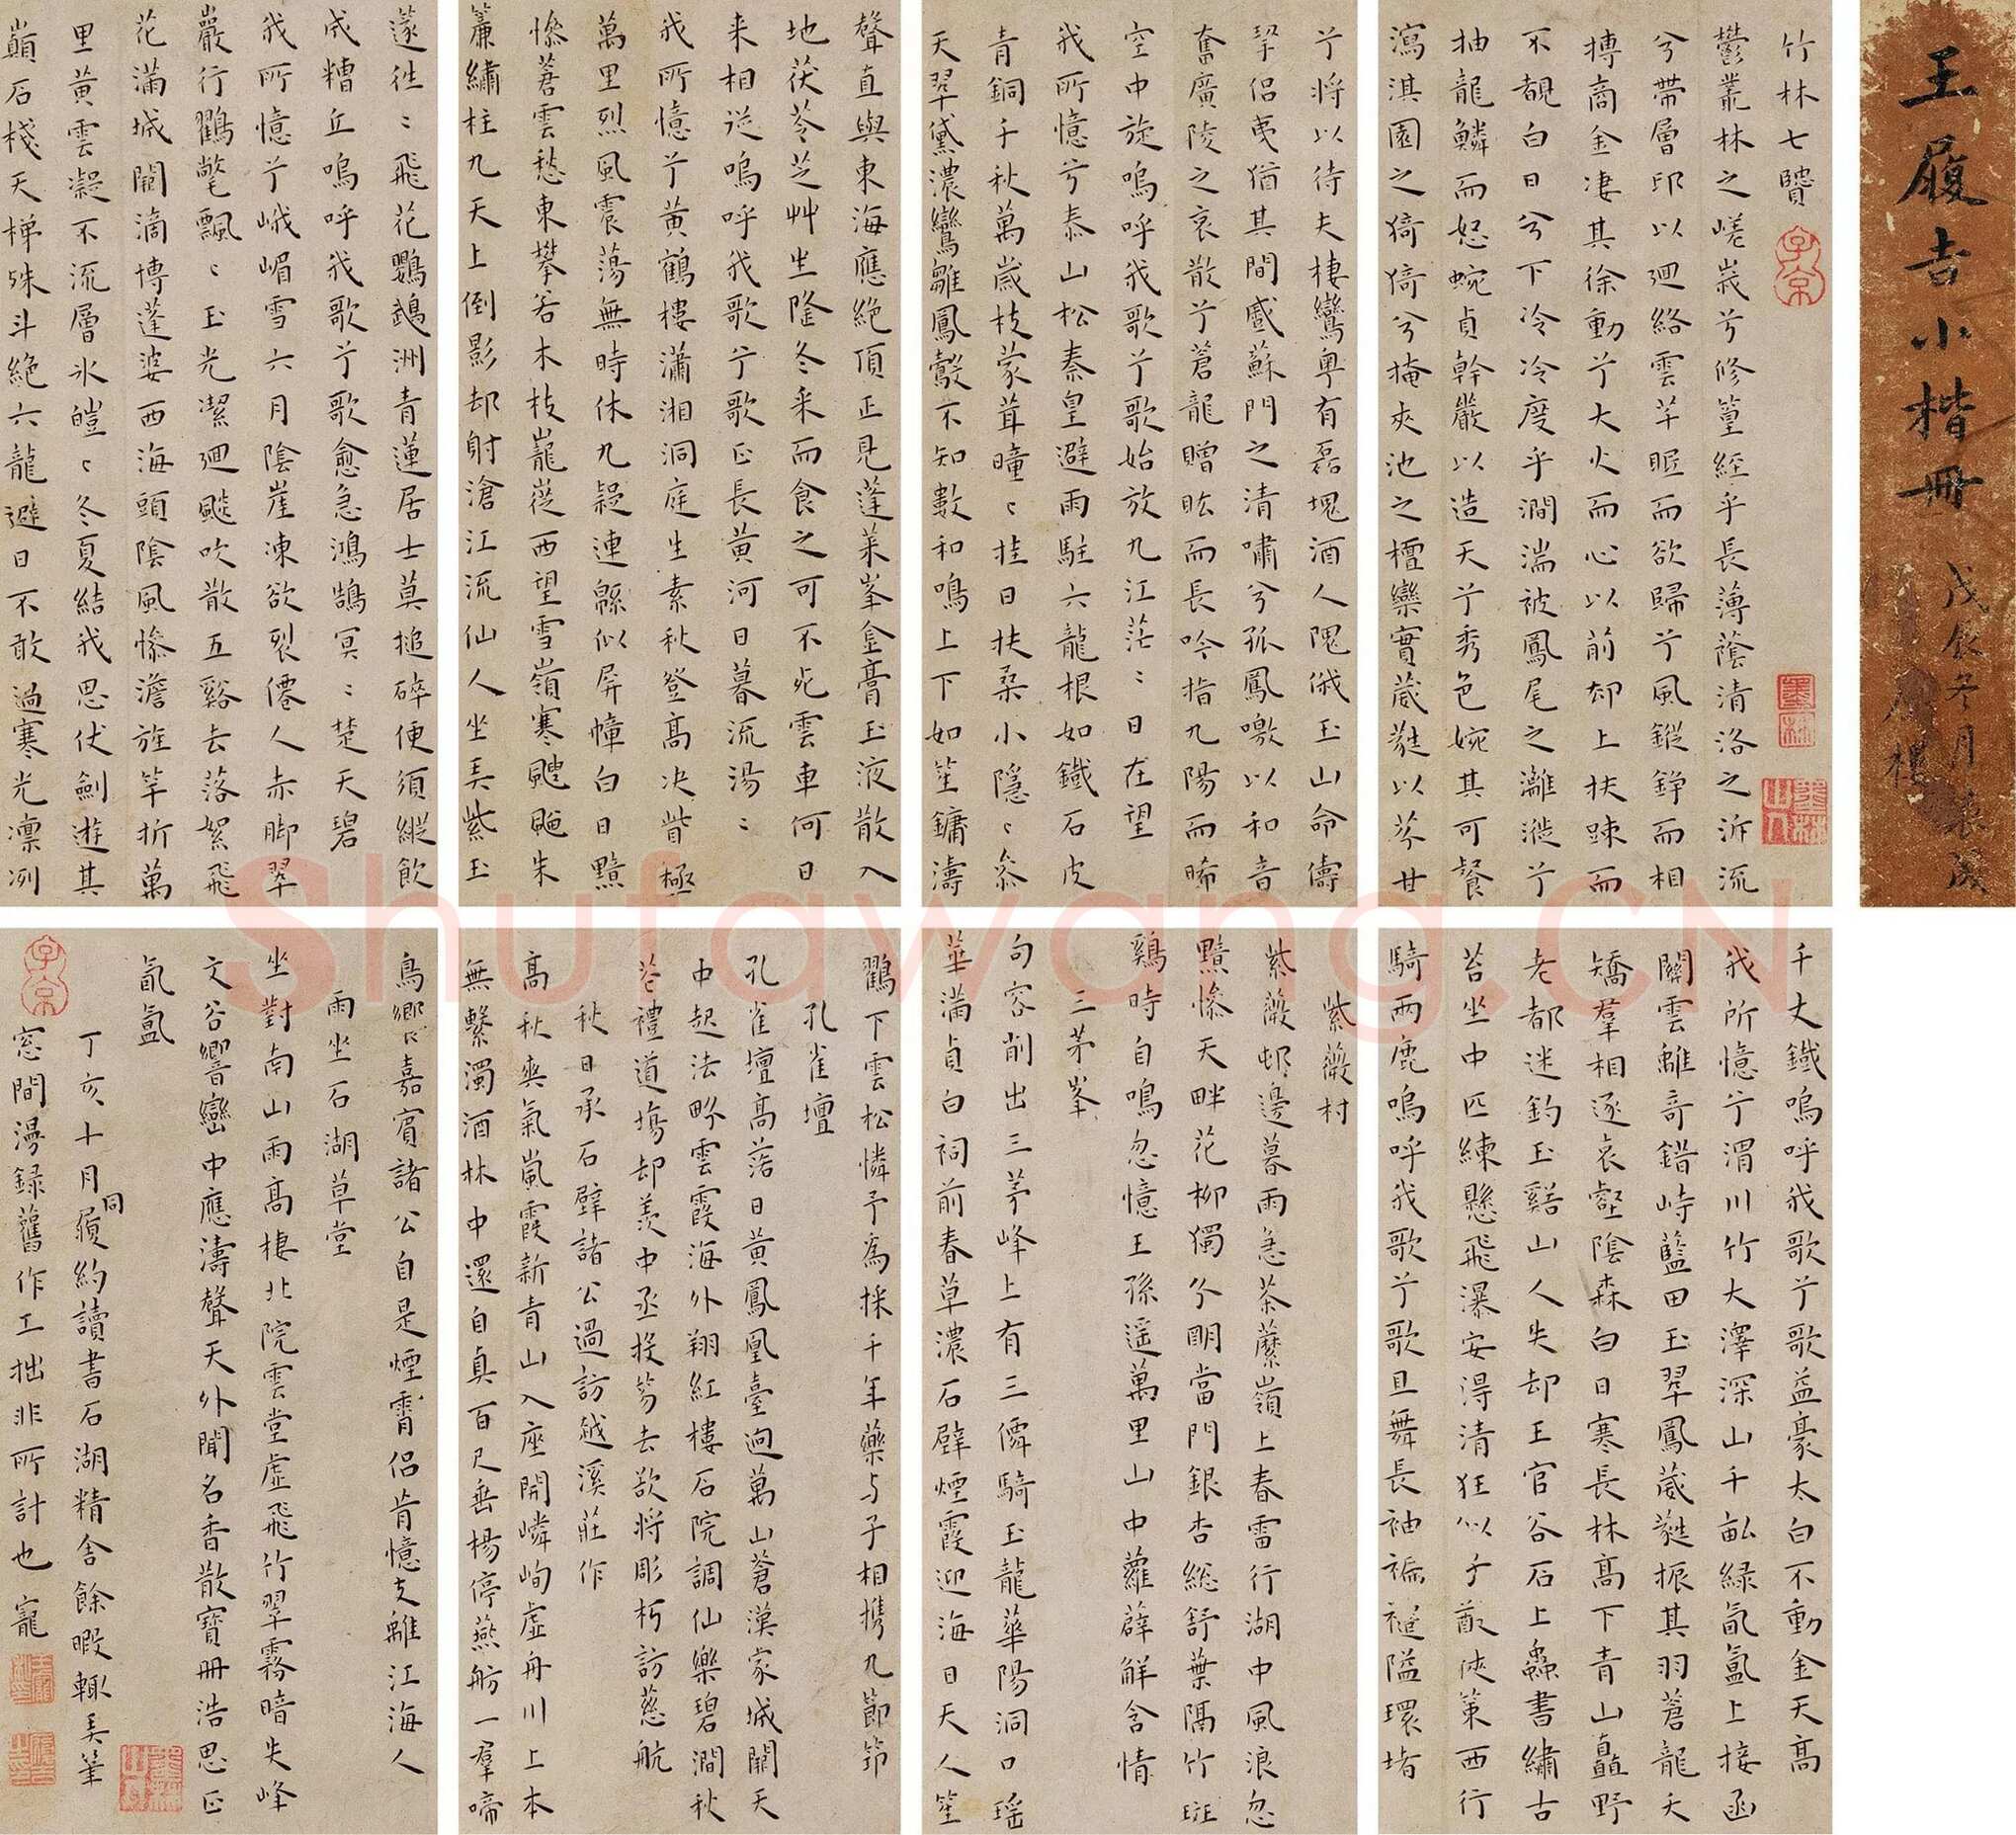 王履吉小楷冊
戊辰冬月裝成
竹林七賢
鬱叢林之嵯峩兮修篁經乎長薄蔭清洛之沂流
兮帶層邱以迴絡雲芊眠而欲歸兮風鏦錚而相
搏商金凄其徐動兮大火而心以前却上扶踈而
不覩白日兮下冷冷度乎澗湍被鳳尾之灕漇兮
抽龍鱗而怒蜿貞幹嚴以造天兮秀色婉其可餐
瀉淇園之猗猗兮掩夾池之檀欒實葳蕤以芬甘
兮將以待夫棲鸞粵有磊塊酒人隗俄玉山命儔
挈侶夷猶其間感蘇門之清嘯兮孤鳳噭以和音
奮廣陵之哀散兮蒼龍贈昿而長吟指九陽而晞
空中旋嗚呼我歌兮歌始放九江茫〻日在望
我所憶兮泰山松秦皇避雨駐六龍根如鐵石皮
青銅千秋萬歲枝蒙茸曈〻挂日扶桑小隱〻參
天翠黛濃鸞雛鳳鷇不知數和鳴上下如笙鏞濤
聲直與東海應絕頂正見蓬萊峯金膏玉液散入
地茯苓芝艸生隆冬采而食之可不死雲車何日
来相從嗚呼我歌兮歌正長黃河日暮流湯〻
我所憶兮黃鶴樓瀟湘洞庭生素秋登高决眥極
萬里烈風震蕩無時休九疑連緜似屏幛白日黯
慘蒼雲愁東攀若木枝巃嵸西望雪嶺寒飀飀朱
簾繡柱九天上倒影却射滄江流仙人坐弄紫玉
遂徃〻飛花鸚鵡洲青蓮居士莫搥碎便須縱飲
成糟丘嗚呼我歌兮歌愈急鴻鵠冥〻楚天碧
我所憶兮峨嵋雪六月陰崖凍欲裂僊人赤脚翠
巖行鸛氅飄〻玉光潔迴颷吹散五谿去落絮飛
花滿城闕滴博蓬婆西海頭陰風慘澹旌竿折萬
里黃雲凝不流層氷皚〻冬夏結我思伏劍遊其
巔石棧天梯殊斗絕六龍避日不敢過寒光凛冽
千丈鐵嗚呼我歌兮歌益豪太白不動金天高
我所憶兮渭川竹大澤深山千畝綠氤氳上接函
關雲離奇錯峙藍田玉翠鳳葳蕤振其羽蒼龍夭
矯羣相逐哀壑陰森白日寒長林高下青山矗野
老都迷釣玉谿山人失却王官谷石上蟲書繡古
苔坐中匹練懸飛瀑安淂清狂似子猷俠策西行
騎兩鹿嗚呼我歌兮歌且舞長袖褊褼隘環堵
紫薇村
紫薇邨邊暮雨急荼蘼嶺上春雷行湖中風浪忽
黯慘天畔花柳獨分明當門銀杏総舒葉隔竹斑
鷄時自鳴忽憶王孫遥萬里山中蘿薜解含情
三茅峯
句容削出三茅峰上有三僊騎玉龍華陽洞口瑶
華滿貞白祠前春草濃石壁煙霞迎海日天人笙
鸛下雲松憐予為採千年藥与子相攜九節笻
孔雀壇
孔雀壇高落日黃鳳凰臺迥萬山蒼漢家城闕天
中起法畍雲霞海外翔紅樓石院調仙樂碧澗秋
花禮道塲却羨中丞投笏去欲將彫朽訪慈航
秋日承石壁諸公過訪越溪莊作
高秋爽氣嵐霞新青山入座開嶙峋虛舟川上本
無繫濁酒林中還自真百尺垂楊停燕舫一羣啼
鳥鄉嘉賓諸公自是煙霄侶肯憶支離江海人
雨坐石湖草堂
坐對南山雨高棲北院雲堂虛飛竹翠霧暗失峰
文谷響巒中應濤聲天外聞名香散寶冊浩思正
氤氳
丁亥十月同履約讀書石湖精舍餘暇輙弄筆
窓間漫錄舊作工拙非所計也寵
Shufawang.CN